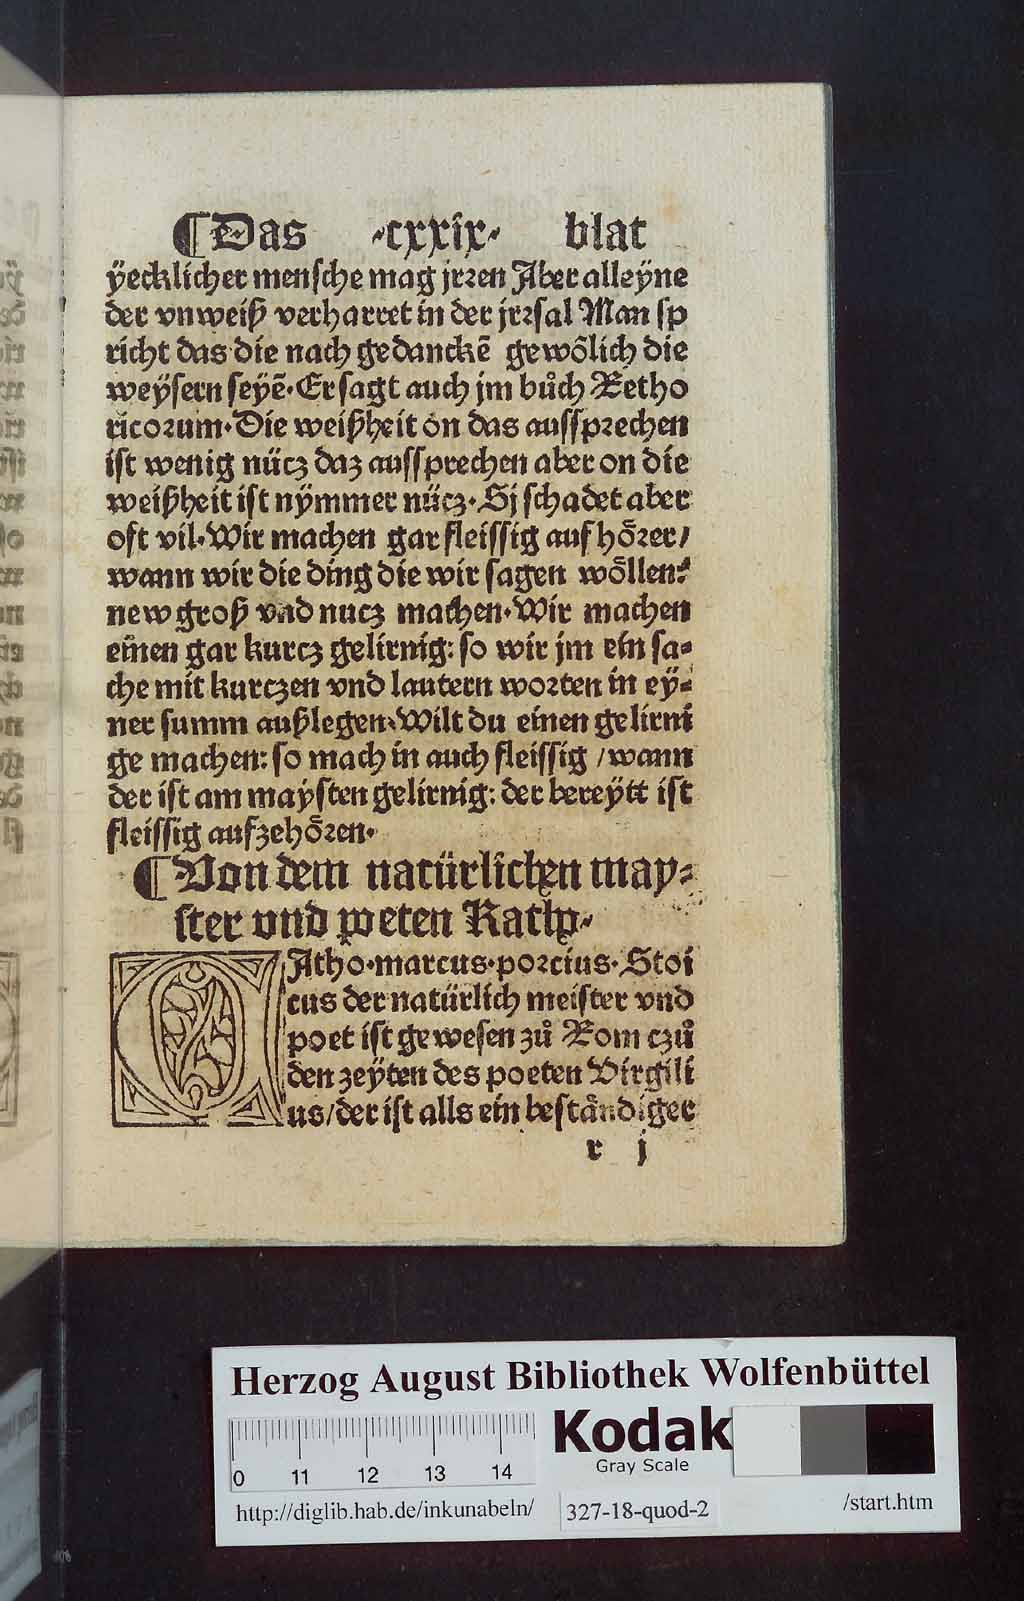 ¶Das ·cxxix· blat
ÿecklicher mensche mag jrꝛen Aber alleÿne
der vnweiß verharret in der jrꝛsal Man sp
richt das die nach gedanckē gewõlich die
weÿsern seyē· Er sagt auch jm bůch Retho
ricoꝛum· Die weißheit on das ausspꝛechen
ist wenig nücz daz aussprechen aber on die
weißheit ist nÿmmer nücz· Sj schadet aber
oft vil· Wir machen gar fleissig auf hoͤꝛer/
wann wir die ding die wir sagen woͤllen:
new groß vnd nucz machen· Wir machen
einen gar kurcz gelirnig: so wir jm ein sa⸗
che mit kurczen vnd lautern woꝛten in eÿ⸗
ner summ außlegen· Wilt du einen gelirni
ge machen: so mach in auch fleissig /wann
der ist am maÿsten gelirnig: der bereÿtt ist
fleissig aufzehoͤꝛen·
¶Von dem natürlichen may⸗
ster vnd poeten Katho·
CAtho· marcus· poꝛcius· Stoi
cus der natürlich meister vnd
poet ist gewesen zů Rom czů
den zeÿten des poeten Virgili
us/der ist alls ein bestaͤndiger
r j
Herzog August Bibliothek Wolfenbüttel
Kodak
Gray Scale
0 11 12 13 14
http://diglib.hab.de/inkunabeln/ 327-18-quod-2 /start.htm